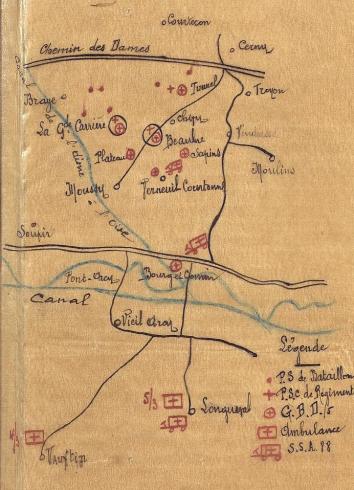 Courtecon
Cerny
Chemin des Dames
Tunnel
Troyon
Braye
Canal de l'Aisne à l'Oise
La Gde Carrière
Chivy
Beaulne
Vendresse
Plateau
Sapins
Moulins
Moussy
Verneuil Courtonne
Soupir
Pont-Arcy
Bourg et Comin
Canal
Vieil Arcy
Légende
P.S de Bataillon
P.S.C de Régiment
G.B.D./5
Ambulance
S.S.A. 98
5/3
Longueval
Vauxtin